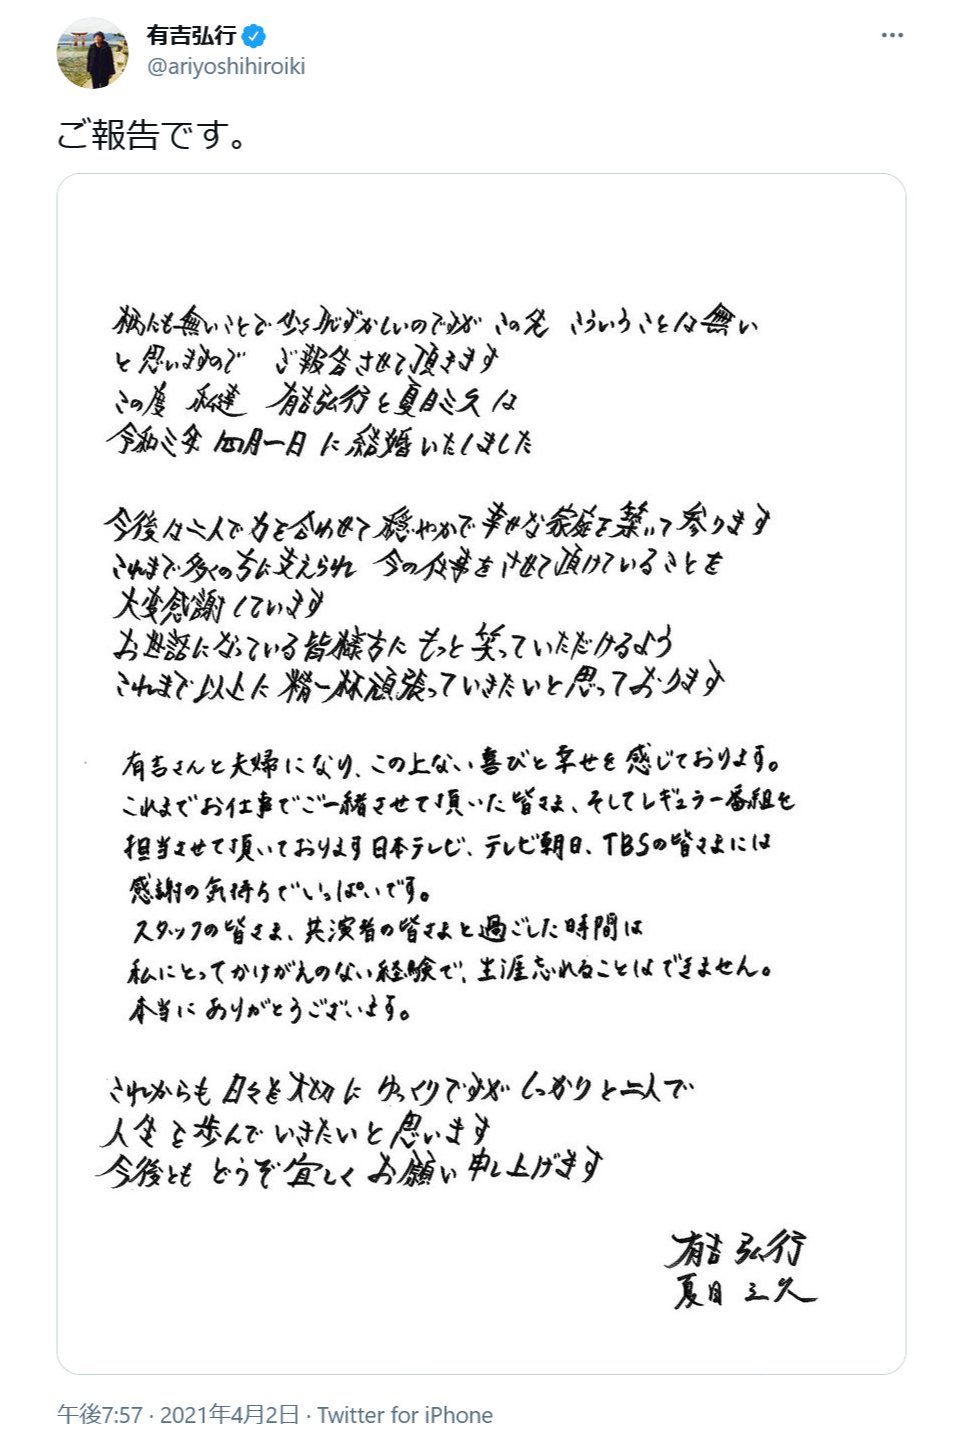 有吉弘行
@ariyoshihiroiki
ご報告です。
柄にも無いことで少々恥ずかしいのですが この先 こういうことは無い
と思いますので ご報告させて頂きます
この度 私達 有吉弘行と夏目三久は
令和三年 四月一日 に結婚いたしました
今後は二人で力を合わせて穏やかで幸せな家庭を築いて参ります
これまで多くの方に支えられ 今の仕事をさせて頂けていることを
大変感謝しています
お世話になっている皆様方に もっと笑っていただけるよう
これまで以上に 精一杯頑張っていきたいと思っております
有吉さんと夫婦になり、この上ない喜びと幸せを感じております。
これまでお仕事でご一緒させて頂いた皆さま、そしてレギュラー番組を
担当させて頂いております日本テレビ、テレビ朝日、TBSの皆さまには
感謝の気持ちでいっぱいです。
スタッフの皆さま、共演者の皆さまと過ごした時間は
私にとってかけがえのない経験で、生涯忘れることはできません。
本当にありがとうございます。
これからも 日々を大切に ゆっくりですが しっかりと二人で
人生を歩んでいきたいと思います
今後とも どうぞ宜しくお願い申し上げます
有吉弘行
夏目三久
午後7:57 · 2021年4月2日 · Twitter for iPhone